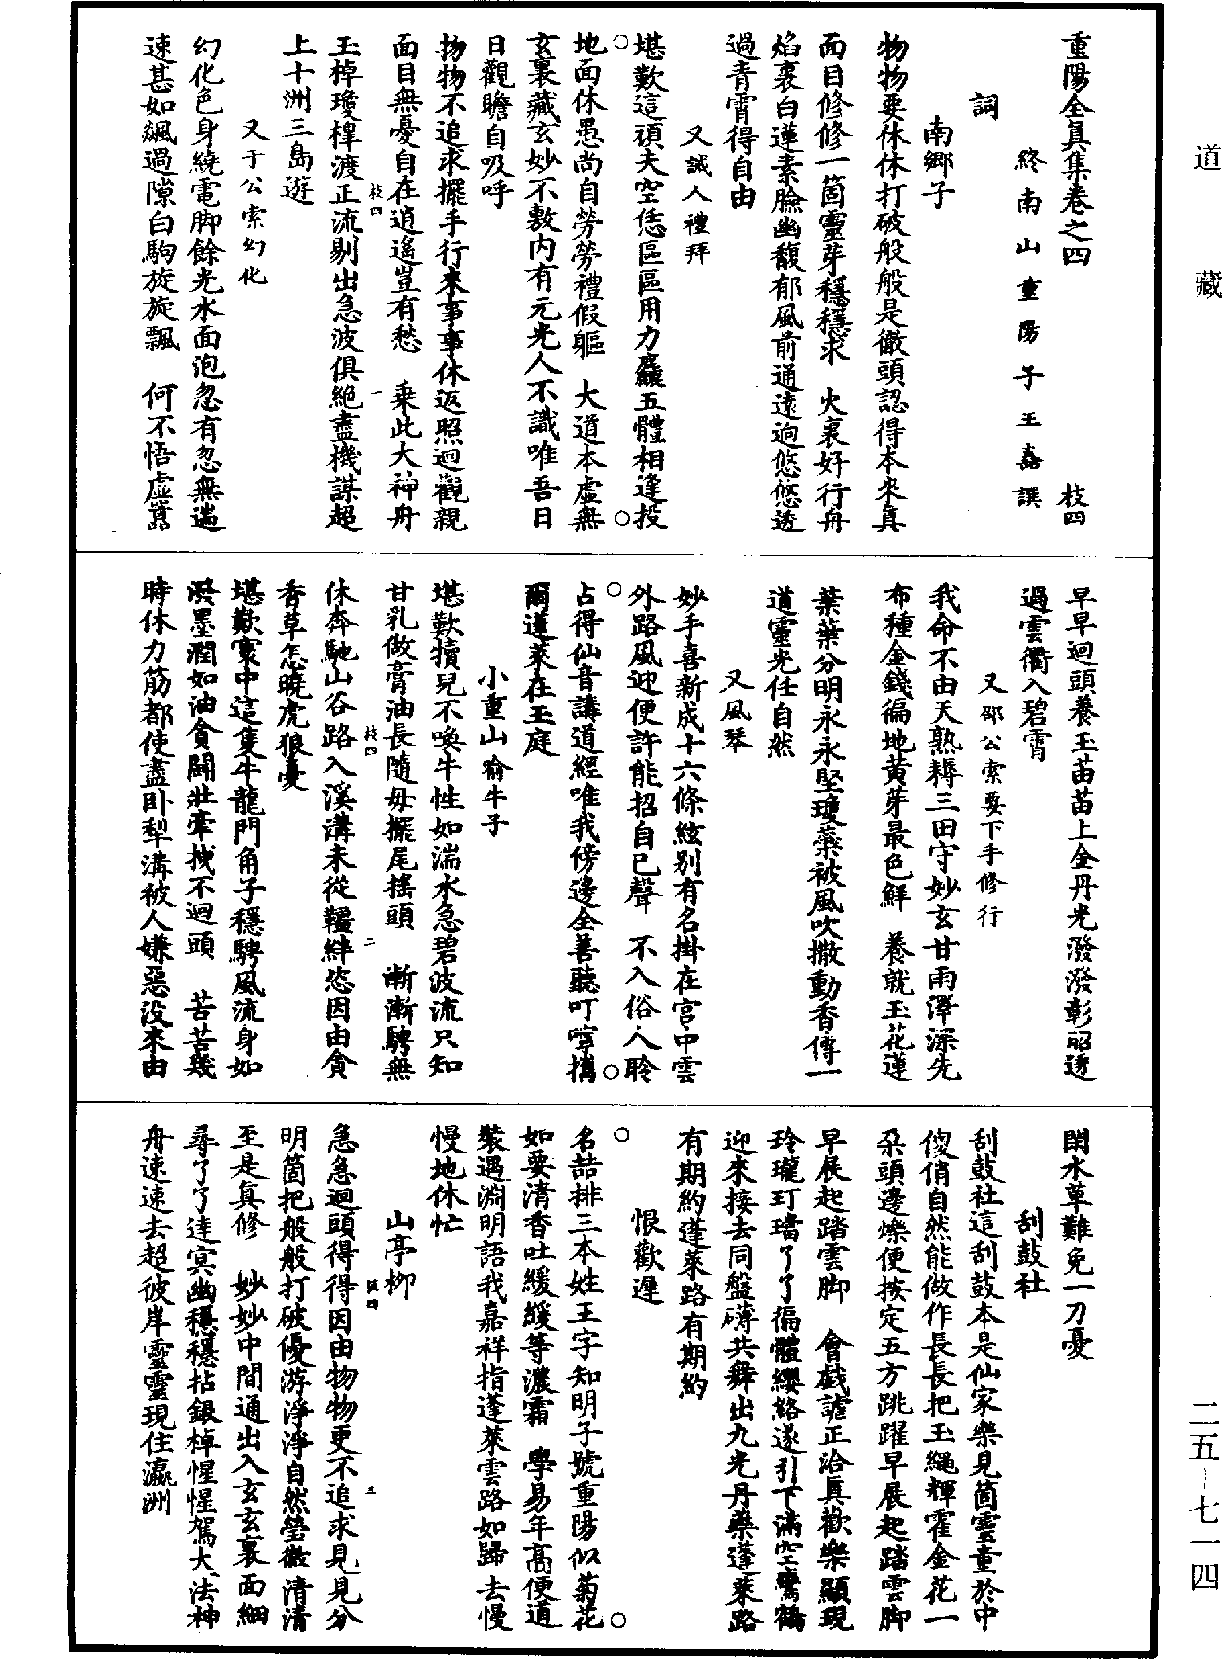 道藏
重陽全眞集卷之四　枝四
終南山重陽子王嚞譔
詞
南鄉子
物物要休休打破般般是徹頭認得本來真
面目修修一箇靈芽穩穩求　火裏好行舟
焰裏白蓮素臉幽馥郁風前通遠逈悠悠透
過青霄得自由
又誡人禮拜
堪歎這頑夫空恁區區用力麤五體相逢投
地面休愚尚自勞勞禮假軀　大道本虛無
玄裏藏玄妙不敷内有元光人不識唯吾日
日觀瞻自吸呼
物物不追求擺手行來事事休返照迴觀親
面目無憂自在逍遙豈有愁　乘此大神舟
玉棹瓊樟渡正流剔出急波俱絕盡機謀超
上十洲三島遊
又于公索幻化
幻化色身繞電脚餘光水面泡忽有忽無遄
速甚如飆過隙白駒旋旋飄　何不悟虛囂
早早迴頭養玉苗苗上金丹光潑潑彰昭透
過雲衢入碧霄
又邵公索要下手修行
我命不由天熟耨三田守妙玄甘雨澤深先
布種金錢徧地黃芽最色鮮　養就玉花蓮
葉葉分明永永堅瓊蘂被風吹撒動香傳一
道靈光任自然
又風琴
妙手喜新成十六條絃别有名掛在宫中雲
外路風迎便許能招自已聲　不入俗人聆
占得仙音講道經唯我傍邊全善聽叮嚀搆
爾蓬萊在玉庭
小重山喻牛子
堪歎犢兒不喚牛性如湍水急碧波流只知
甘乳做膏油長隨母擺尾摇頭　漸漸騁無
休奔馳山谷路入溪溝未從韁絆恣因由貪
香草怎曉虎狼憂
堪歎寰中這隻牛龍門角子穩騁風流身如
潑墨潤如油貪鬭壯牽拽不迴頭　苦苦幾
時休力筋都使盡卧犁溝被人嫌惡没來由
閑水草難免一刀憂
刮鼓社
刮鼓社這刮鼓本是仙家樂見箇靈童於中
傻俏自然能做作長長把玉繩輝霍金花一
朶頭邊爍便按定五方跳躍早展起踏雲脚
早展起踏雲脚　會戲謔正洽眞歡樂顯現
玲瓏玎璫了了徧體纓絡遂引下滿空鸞鶴
迎來接去同盤礴共舞出九光丹藥蓬萊路
有期約蓬萊路有期約
恨歡遲
名喆排三本姓王字知明子號重陽似菊花
如要清香吐緩緩等濃霜　學易年高便道
裝遇淵明語我嘉祥指蓬萊雲路如歸去慢
慢地休忙
山亭柳
急急迴頭得得因由物物更不追求見見分
明箇把般般打破優游淨淨自然瑩徹清清
至是眞修　妙妙中間通出入玄玄裏面細
尋了了達冥幽穩穩拈銀棹惺惺駕大法神
舟速速去超彼岸靈靈現住瀛洲
二五－七一四